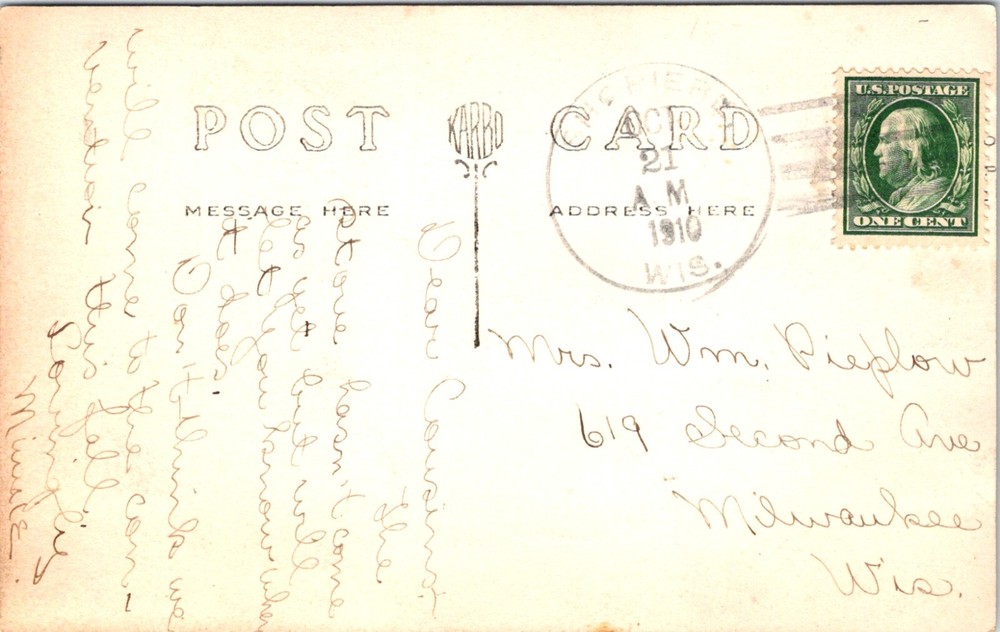 POST CARD
KARBO
MESSAGE HERE
ADDRESS HERE
OCT
21
A M
1910
WIS.
U.S. POSTAGE
ONE CENT
Dear Cousins:
The
store hasn't come
as yet but will
let you know when
it does.
Don't think we
will come to the con-
vention this fall.
Lovingly
Minnie.
Mrs. Wm. Pieplow
619 Second Ave
Milwaukee
Wis.